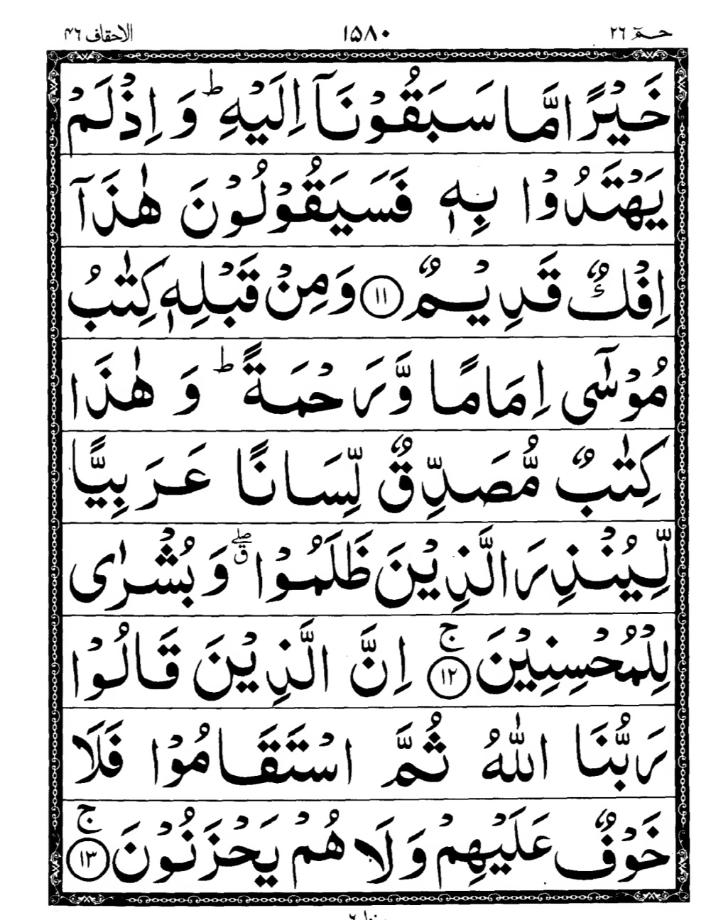 حـمٓ ٢٦ ١٥٨٠ الاحقاف ٤٦
خَيْرًا مَّا سَبَقُوْنَاۤ اِلَيْهِ ؕ وَ اِذْ لَمْ
يَهْتَدُوْا بِهٖ فَسَيَقُوْلُوْنَ هٰذَاۤ
اِفْكٌ قَدِيْمٌ ﴿١١﴾ وَ مِنْ قَبْلِهٖ كِتٰبُ
مُوْسٰۤى اِمَامًا وَّ رَحْمَةً ؕ وَ هٰذَا
كِتٰبٌ مُّصَدِّقٌ لِّسَانًا عَرَبِيًّا
لِّيُنْذِرَ الَّذِيْنَ ظَلَمُوْا ۖۗ وَ بُشْرٰى
لِلْمُحْسِنِيْنَ ﴿١٢﴾ ۚ اِنَّ الَّذِيْنَ قَالُوْا
رَبُّنَا اللّٰهُ ثُمَّ اسْتَقَامُوْا فَلَا
خَوْفٌ عَلَيْهِمْ وَ لَا هُمْ يَحْزَنُوْنَ ﴿١٣﴾ ۚ